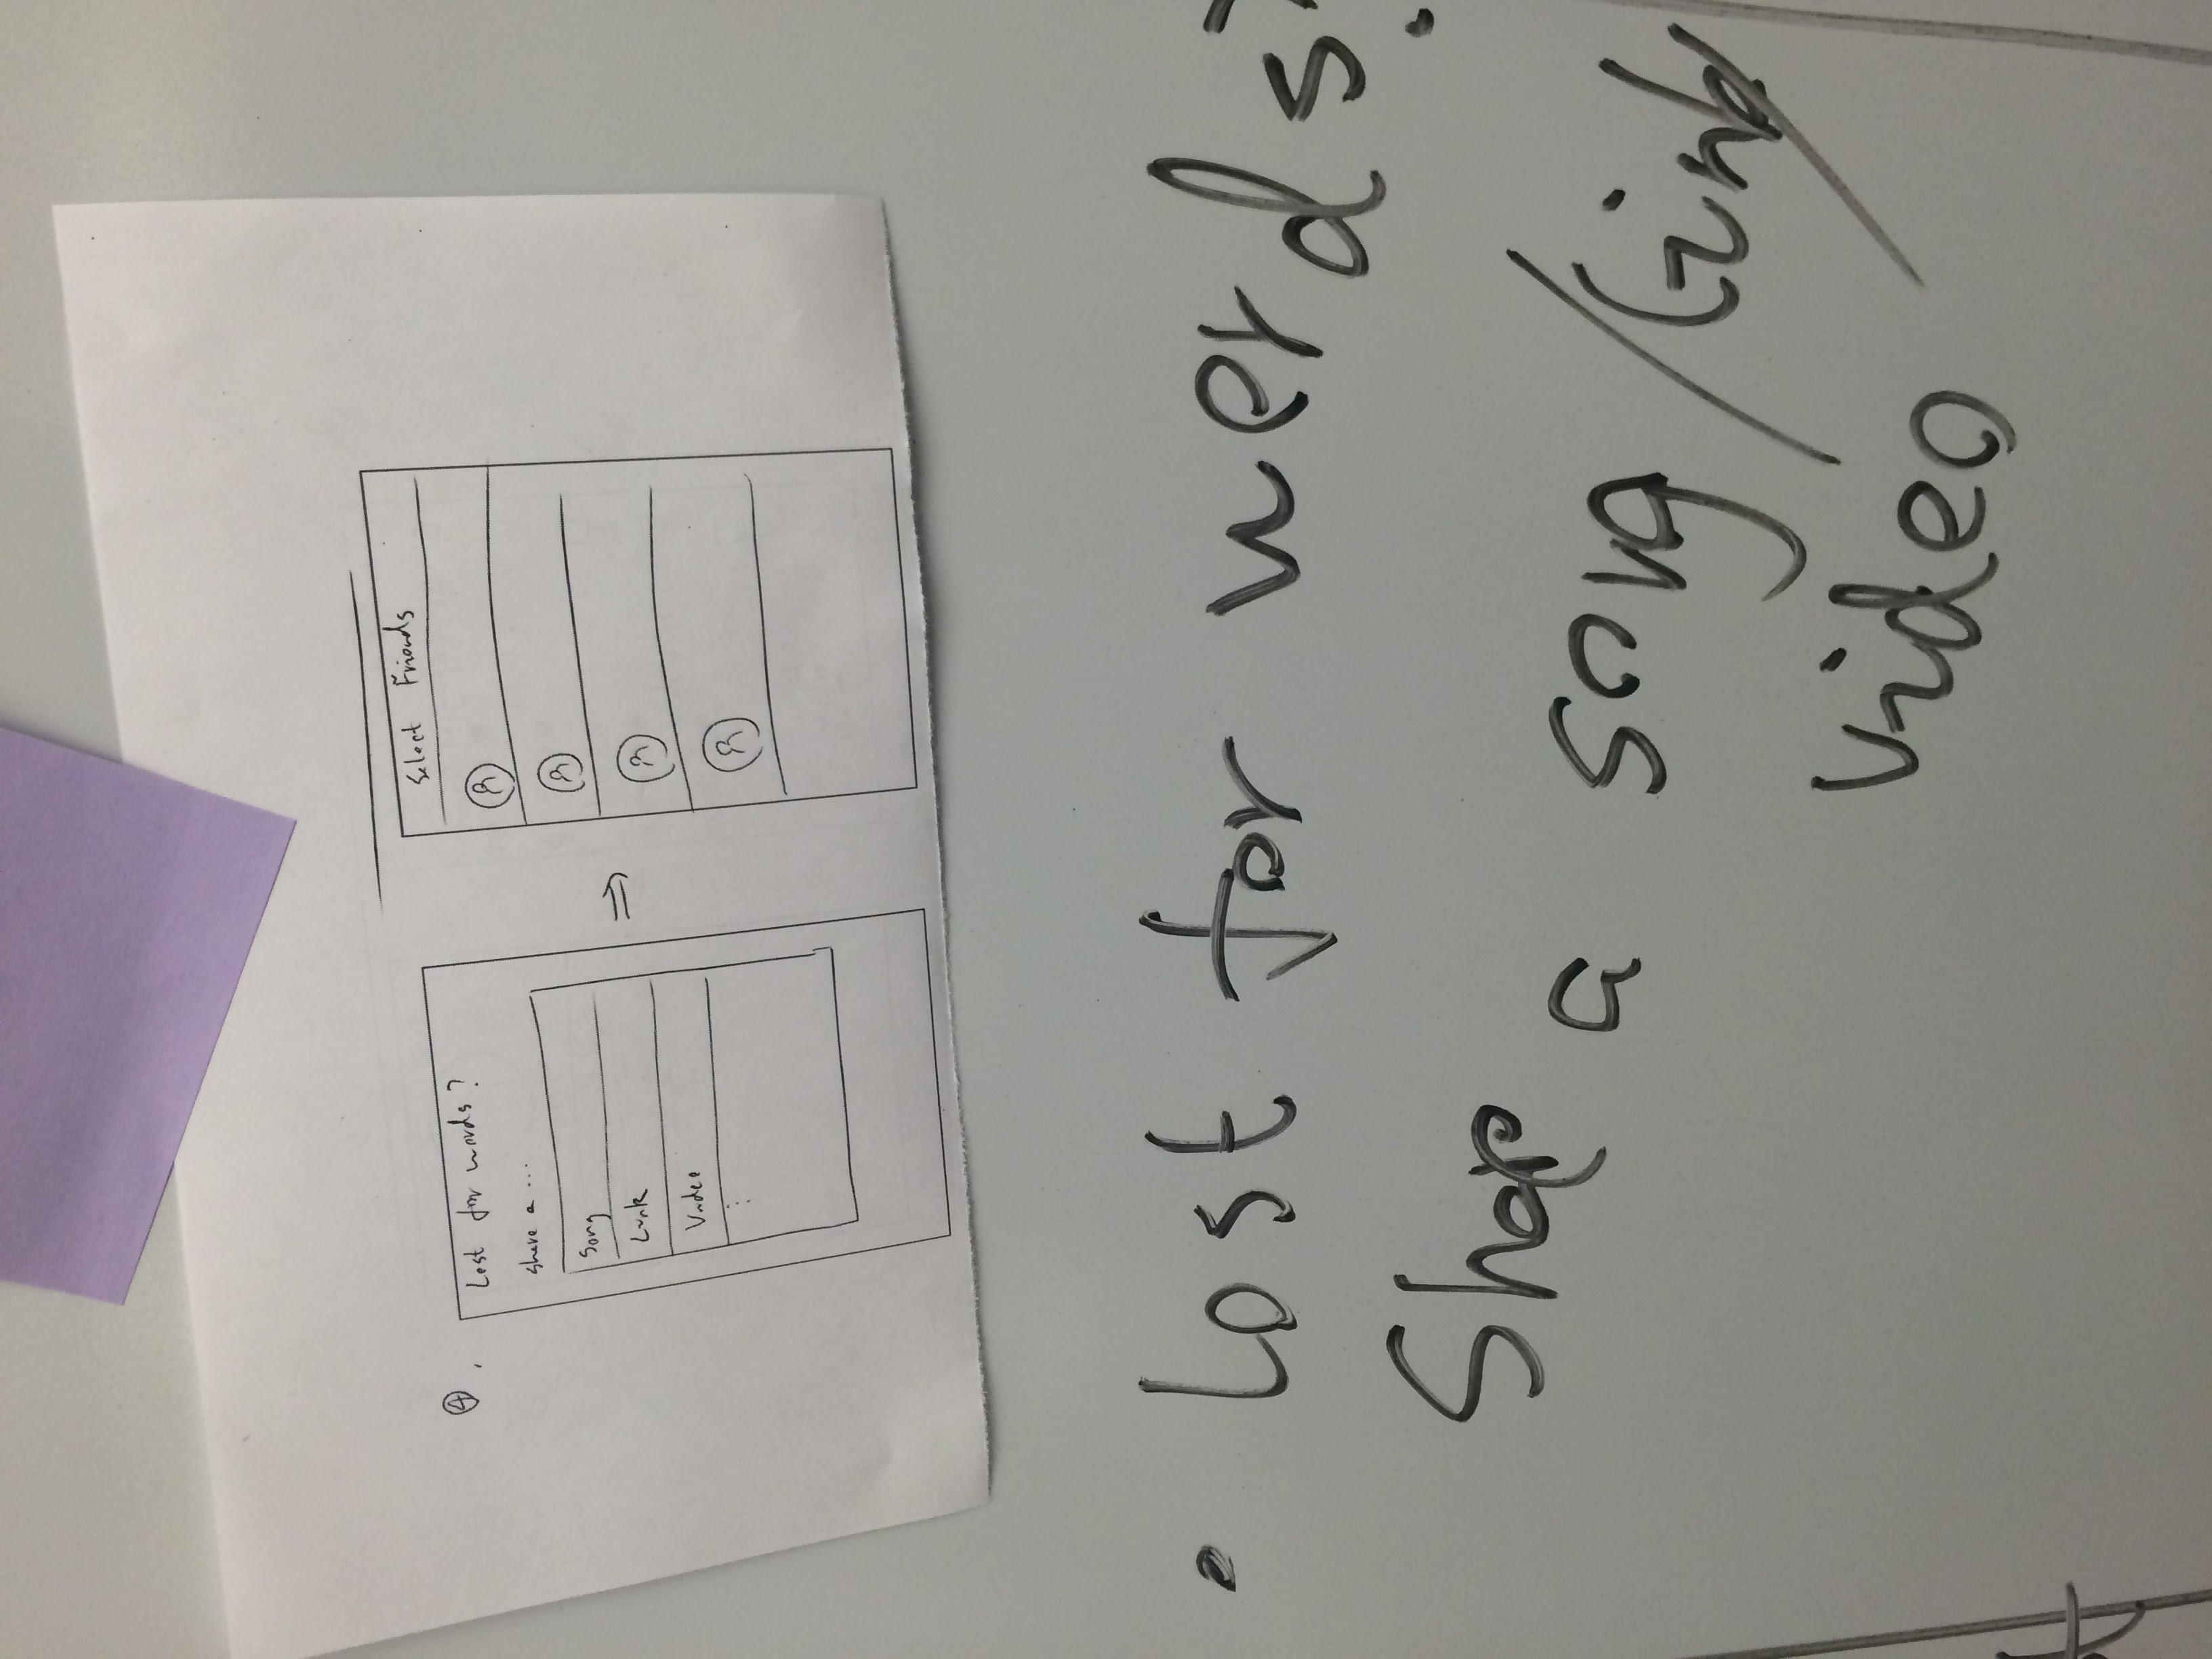 ④.
Lost for words?
share a ...
Song
Link
Video
⋮
⇒
Select Friends
• Lost for words?
Share a song/link/
video